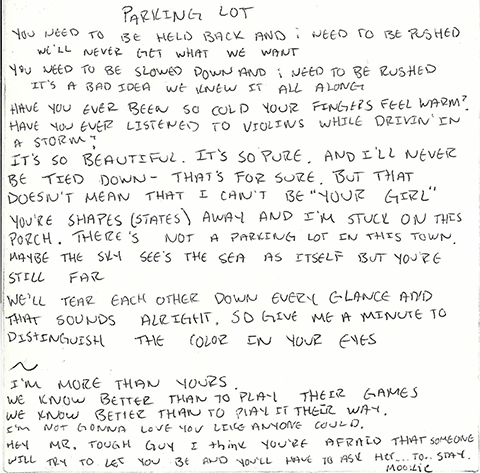 PARKING LOT
YOU NEED TO BE HELD BACK AND i NEED TO BE PUSHED
WE'LL NEVER GET WHAT WE WANT
YOU NEED TO BE SLOWED DOWN AND i NEED TO BE RUSHED
IT'S A BAD IDEA WE KNEW IT ALL ALONG
HAVE YOU EVER BEEN SO COLD YOUR FINGERS FEEL WARM?
HAVE YOU EVER LISTENED TO VIOLINS WHILE DRIVIN' IN
A STORM?
IT'S SO BEAUTIFUL. IT'S SO PURE. AND I'LL NEVER
BE TIED DOWN - THAT'S FOR SURE. BUT THAT
DOESN'T MEAN THAT I CAN'T BE "YOUR GIRL"
YOU'RE SHAPES (STATES) AWAY AND I'M STUCK ON THIS
PORCH. THERE'S NOT A PARKING LOT IN THIS TOWN.
MAYBE THE SKY SEE'S THE SEA AS ITSELF BUT YOU'RE
STILL FAR
WE'LL TEAR EACH OTHER DOWN EVERY GLANCE AND
THAT SOUNDS ALRIGHT. SO GIVE ME A MINUTE TO
DISTINGUISH THE COLOR IN YOUR EYES
~
I'M MORE THAN YOURS.
WE KNOW BETTER THAN TO PLAY THEIR GAMES
WE KNOW BETTER THAN TO PLAY IT THEIR WAY.
I'M NOT GONNA LOVE YOU LIKE ANYONE COULD.
HEY MR. TOUGH GUY I think YOU'RE AFRAID THAT SOMEONE
WILL TRY TO LET YOU BE AND YOU'LL HAVE TO ASK HER... TO.. STAY.